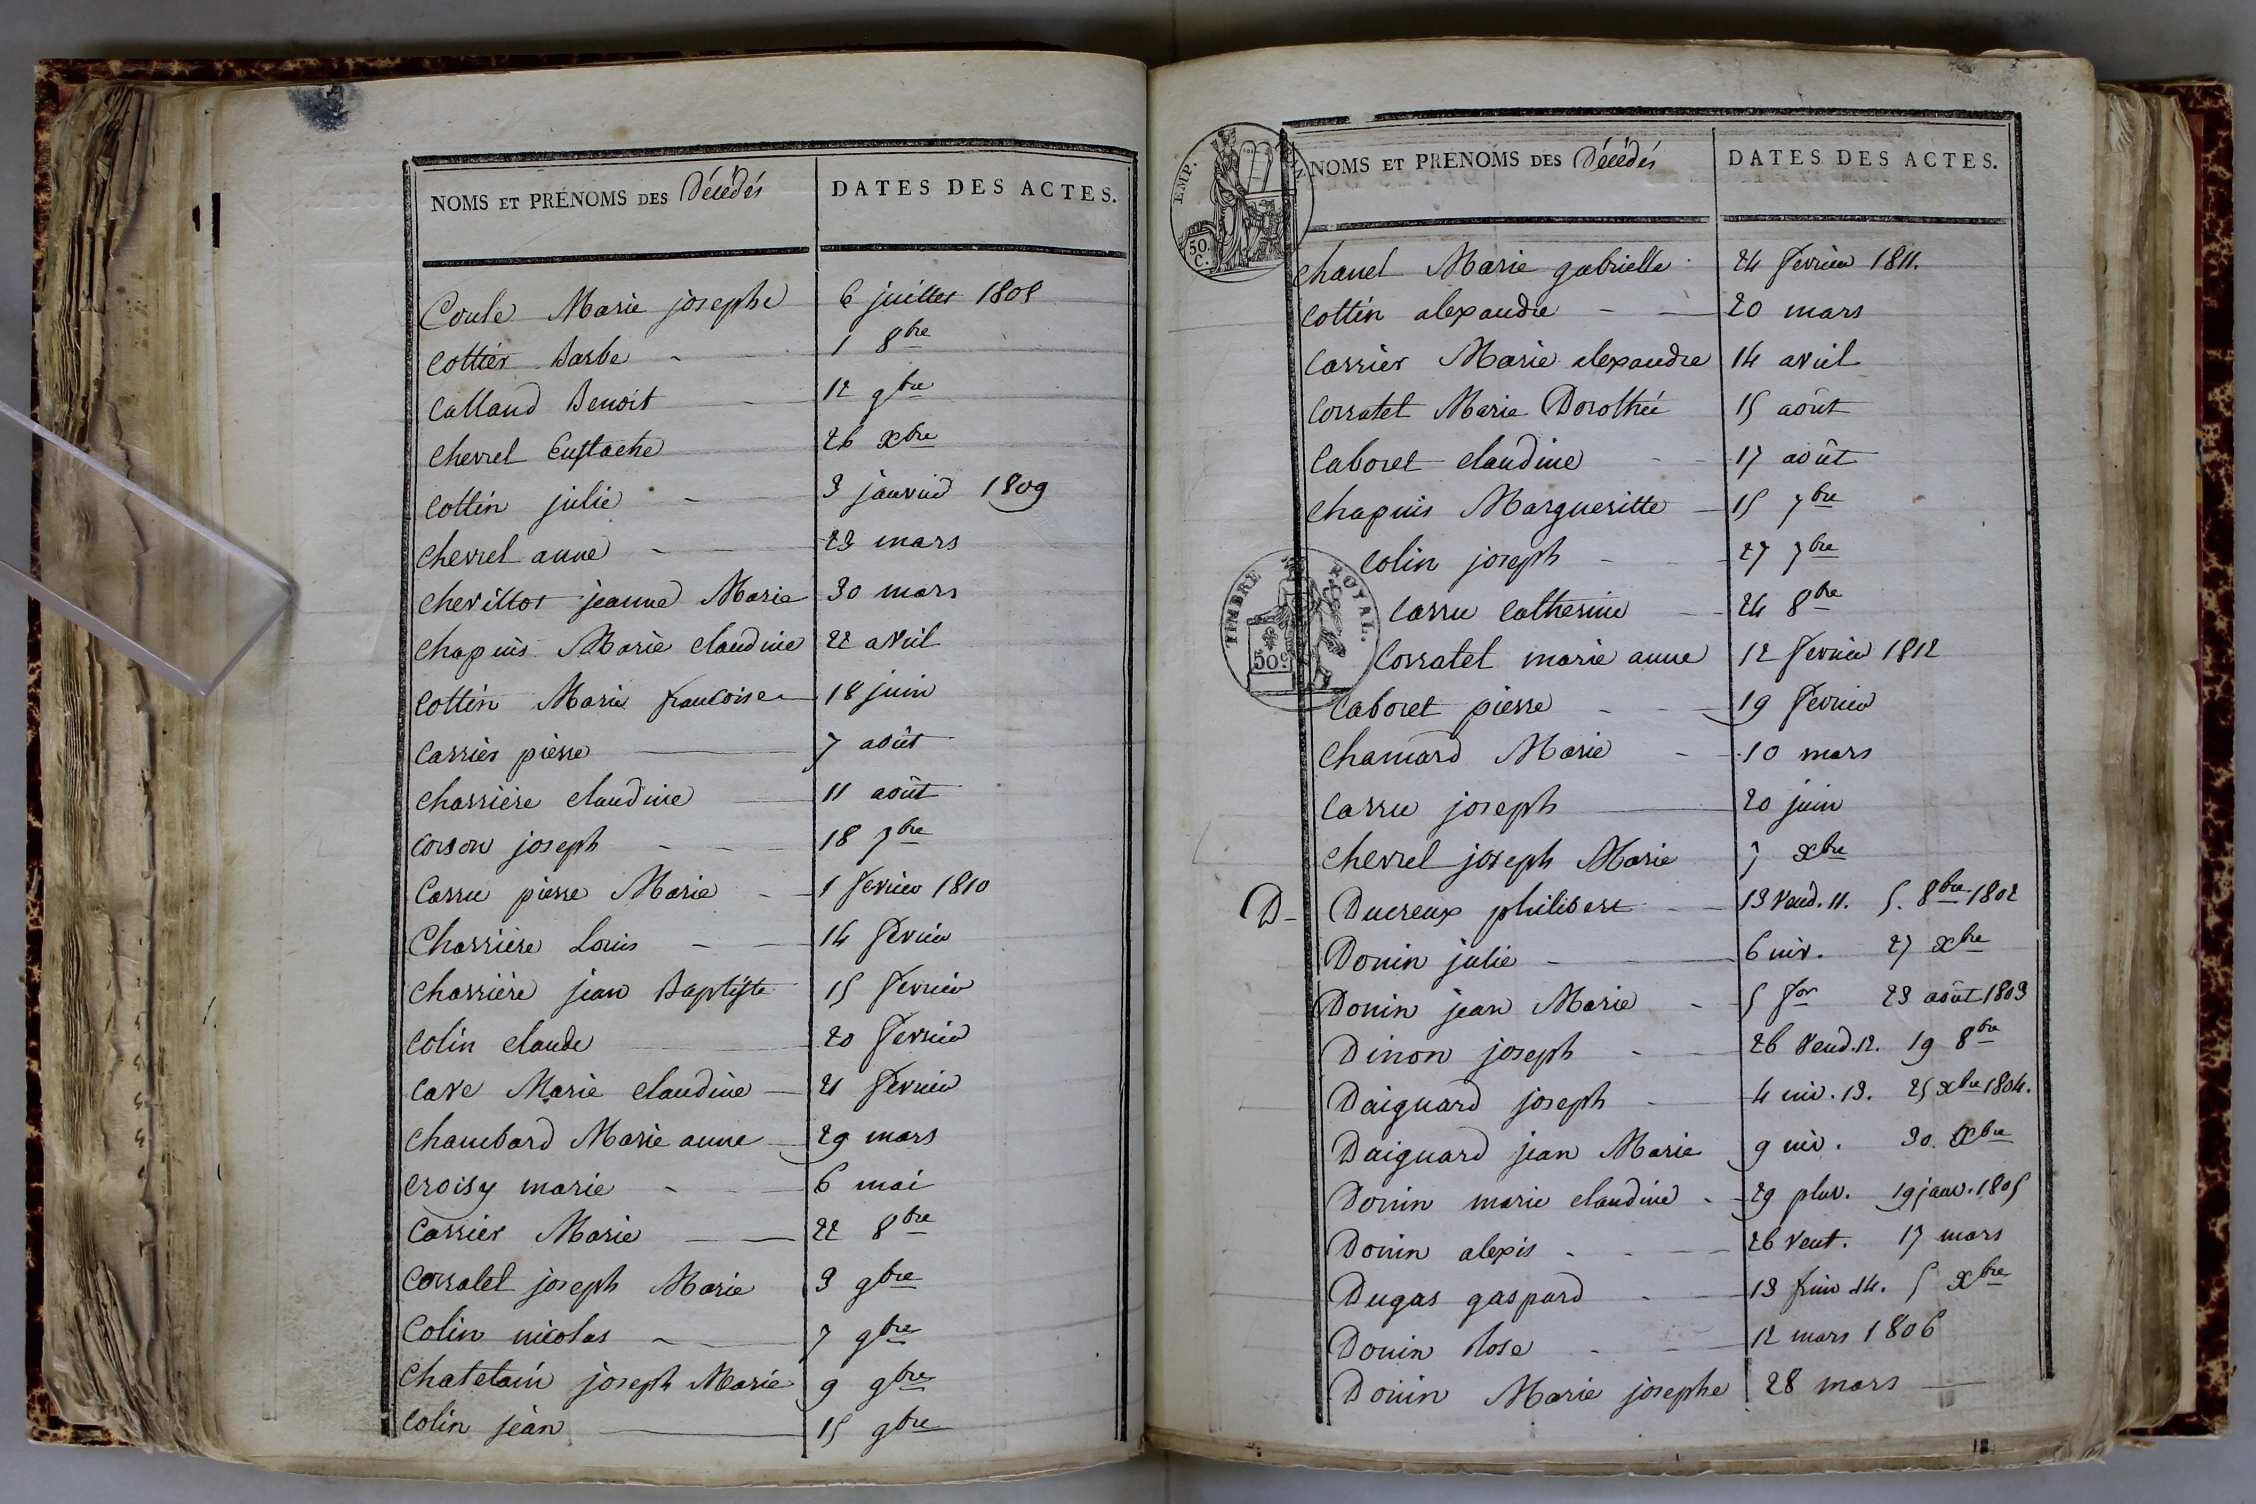 NOMS ET PRÉNOMS DES Décédés DATES DES ACTES.
Coule Marie josephe 6 juillet 1808
Cottier Barbe 1 8bre
Calland Benoit 12 9bre
Chevrel Eustache 26 xbre
Cottin julie 3 janvier 1809
Chevrel anne 23 mars
Chevillot jeanne Marie 30 mars
Chapuis Marie claudine 22 avril
Cottin Marie françoise 18 juin
Carrier pierre 7 août
Charrière claudine 11 août
Corson joseph 18 7bre
Carru pierre Marie 1 fevrier 1810
Charrière Louis 14 fevrier
Charrière jean Baptiste 15 fevrier
Colin claude 20 fevrier
Cave Marie claudine 21 fevrier
Chambard Marie anne 29 mars
Croisy marie 6 mai
Carrier Marie 22 8bre
Corratel joseph Marie 3 9bre
Colin nicolas 7 9bre
Chatelain joseph Marie 9 9bre
Colin jean 15 9bre
EMP.
50. C.
NOMS ET PRENOMS DES Décédés DATES DES ACTES.
Chanel Marie gabrielle 24 fevrier 1811.
Cottin alexandre 20 mars
Carrier Marie alexandre 14 avril
Corratel Marie Dorothée 15 août
Caboret claudine 17 août
Chapuis Margueritte 15 7bre
Colin joseph 27 7bre
TIMBRE ROYAL.
50 c
Carru Catherine 24 8bre
Corratel marie anne 12 fevrier 1812
Caboret pierre 19 fevrier
Chamard Marie 10 mars
Carru joseph 20 juin
Chevrel joseph Marie 7 xbre
D- Ducreux philibert 13 Vend. 11. 5. 8bre 1802
Donin julie 6 niv. 27 xbre
Donin jean Marie 5 for 23 août 1803
Dinon joseph 26 Vend. 12. 19 8bre
Daiguard joseph 4 niv. 13. 25 xbre 1804.
Daiguard jean Marie 9 niv. 30 xbre
Donin marie claudine 29 pluv. 19 janv. 1805
Donin alexis 26 Vent. 17 mars
Dugas gaspard 13 frim 14. 5 xbre
Donin Rose 12 mars 1806
Donin Marie josephe 28 mars